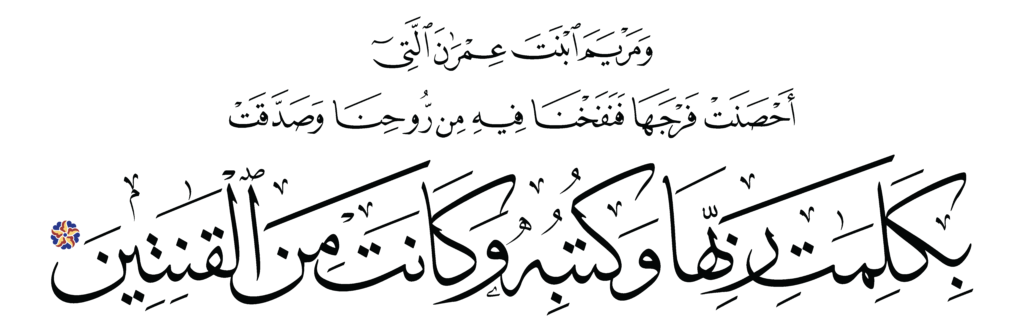 وَمَرْيَمَ ٱبْنَتَ عِمْرَٰنَ ٱلَّتِىٓ
أَحْصَنَتْ فَرْجَهَا فَنَفَخْنَا فِيهِ مِن رُّوحِنَا وَصَدَّقَتْ
بِكَلِمَٰتِ رَبِّهَا وَكُتُبِهِۦ وَكَانَتْ مِنَ ٱلْقَٰنِتِينَ